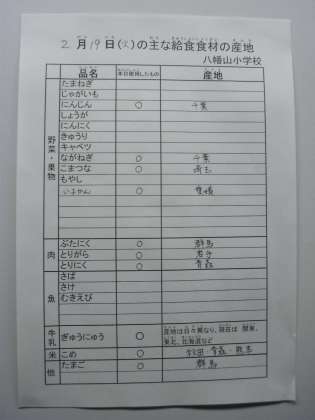 2月19日(火)の主な給食食材の産地
八幡山小学校
品名 本日使用したもの 産地
野菜・果物
たまねぎ
じゃがいも
にんじん ○ 千葉
しょうが
にんにく
きゅうり
キャベツ
ながねぎ ○ 千葉
こまつな ○
もやし
いよかん ○ 愛媛
肉
ぶたにく ○ 群馬
とりがら ○ 岩手
とりにく ○ 青森
魚
さば
さけ
むきえび
牛乳 ぎゅうにゅう ○ 産地は日々異なり、現在は 関東、
東北、北海道など
米 こめ ○ 秋田・青森・熊本
他 たまご ○ 群馬